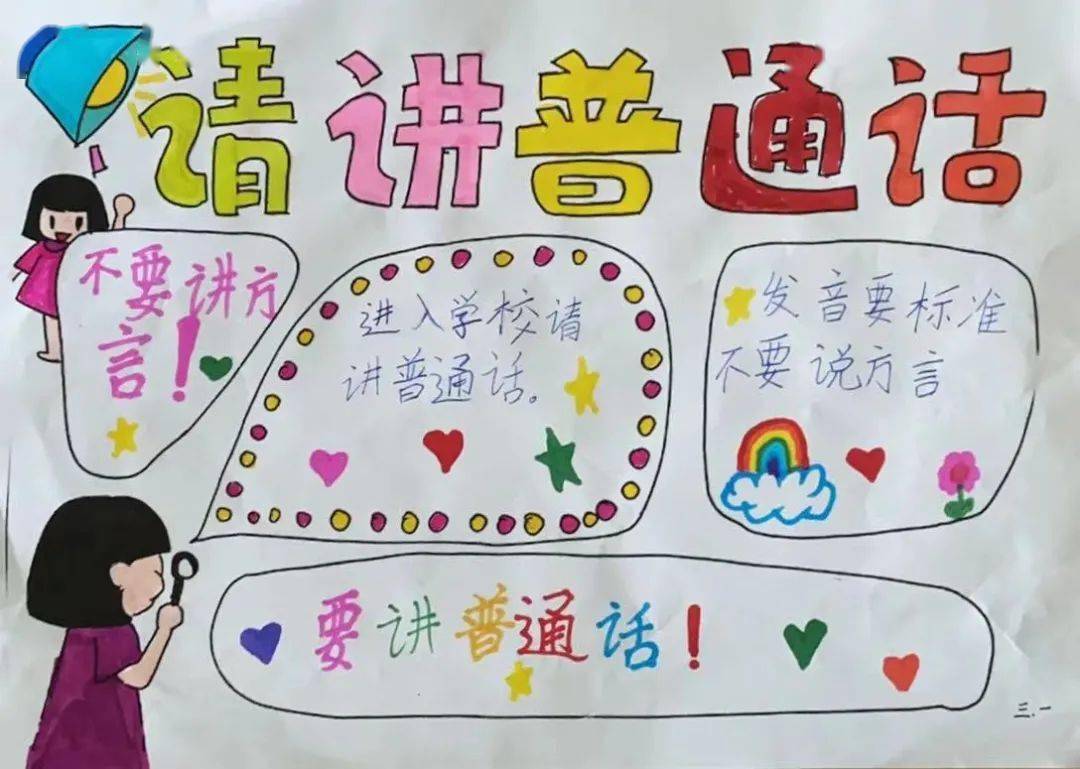 请讲普通话
不要讲方
言！
进入学校请
讲普通话。
发音要标准
不要说方言
要讲普通话！
三.一